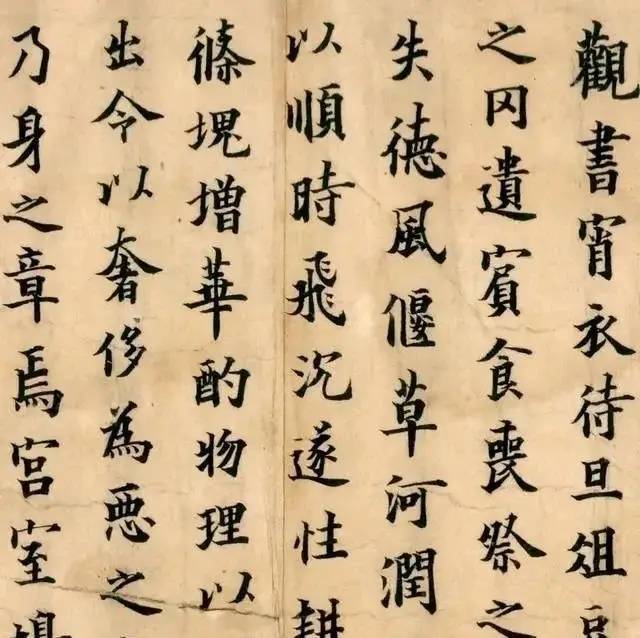 觀書宵衣待旦俎豆
之罔遺賓食喪祭之
失德風偃草河潤
以順時飛沉遂性耕
滌塊增華酌物理以
出令以奢侈為惡之
乃身之章焉宮室